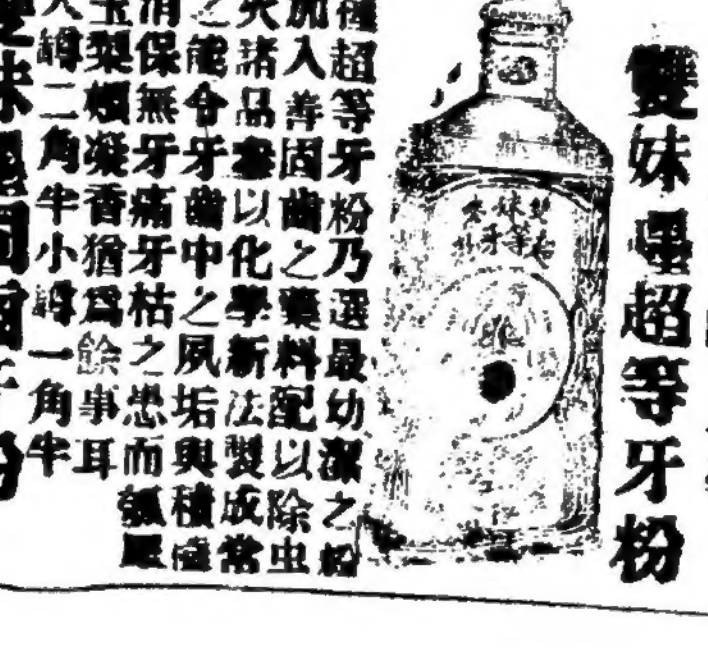 雙妹嚜超等牙粉
種超等牙粉乃選最幼潔之粉
加入善固齒之藥料配以除虫
諸品以化學新法製成常
之能令牙齒中之夙垢與積
消保無牙痛牙枯之患而瓠犀
玉梨頰凝香猶爲餘事耳
罇二角半小罇一角半